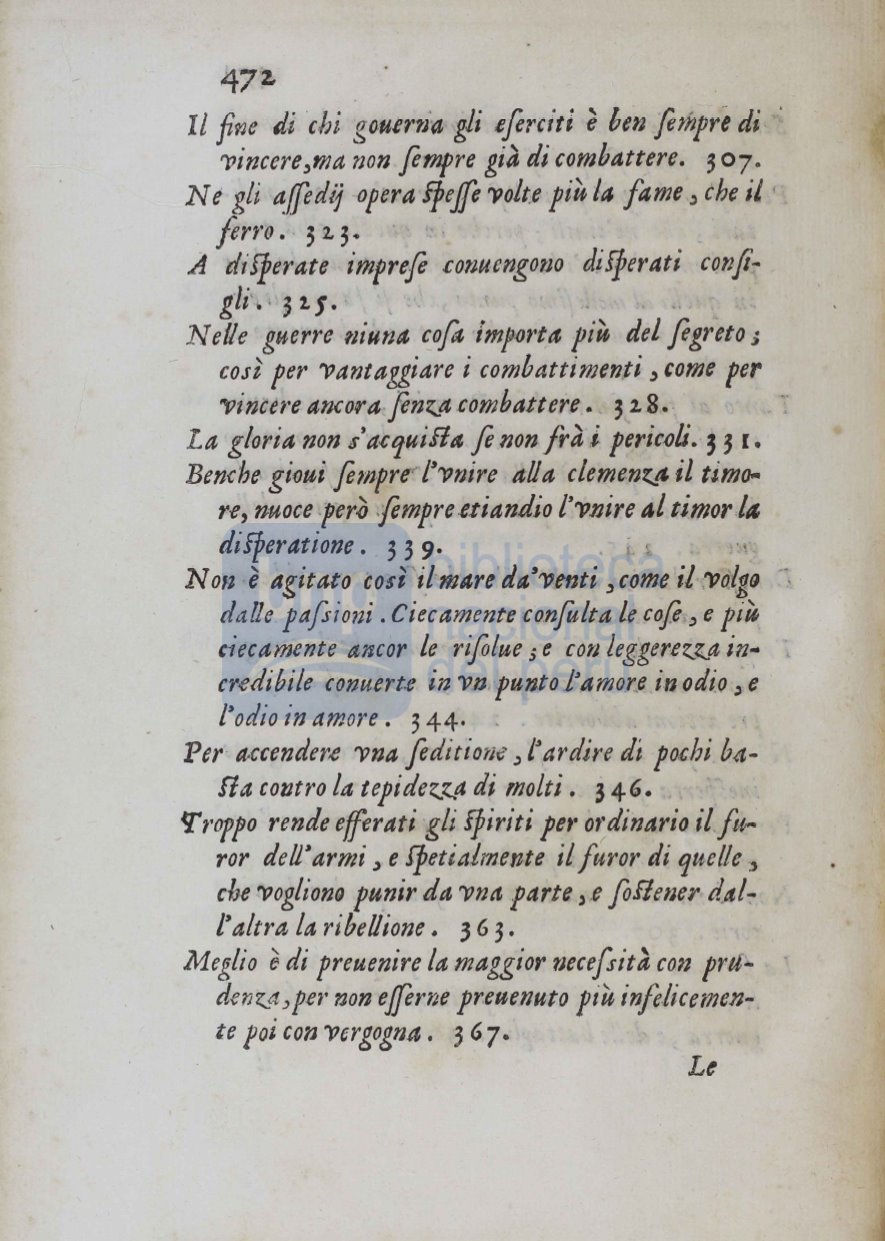 472
Il fine di chi gouerna gli eſerciti è ben ſempre di
vincere,ma non ſempre già di combattere. 307.
Ne gli aſſedij opera ſpeſſe volte più la fame, che il
ferro. 323.
A diſperate impreſe conuengono diſperati conſi-
gli. 325.
Nelle guerre niuna coſa importa più del ſegreto;
così per vantaggiare i combattimenti, come per
vincere ancora ſenza combattere. 328.
La gloria non s'acquiſta ſe non frà i pericoli. 331.
Benche gioui ſempre l'vnire alla clemenza il timo-
re, nuoce però ſempre etiandio l'vnire al timor la
diſperatione. 339.
Non è agitato così il mare da'venti, come il volgo
dalle paſsioni. Ciecamente conſulta le coſe, e più
ciecamente ancor le riſolue; e con leggerezza in-
credibile conuerte in vn punto l'amore in odio, e
l'odio in amore. 344.
Per accendere vna ſeditione, l'ardire di pochi ba-
ſta contro la tepidezza di molti. 346.
Troppo rende efferati gli ſpiriti per ordinario il fu-
ror dell'armi, e ſpetialmente il furor di quelle,
che vogliono punir da vna parte, e ſoſtener dal-
l'altra la ribellione. 363.
Meglio è di preuenire la maggior neceſsità con pru-
denza, per non eſſerne preuenuto più infelicemen-
te poi con vergogna. 367.
Le
biblioteca
nacional
del perú